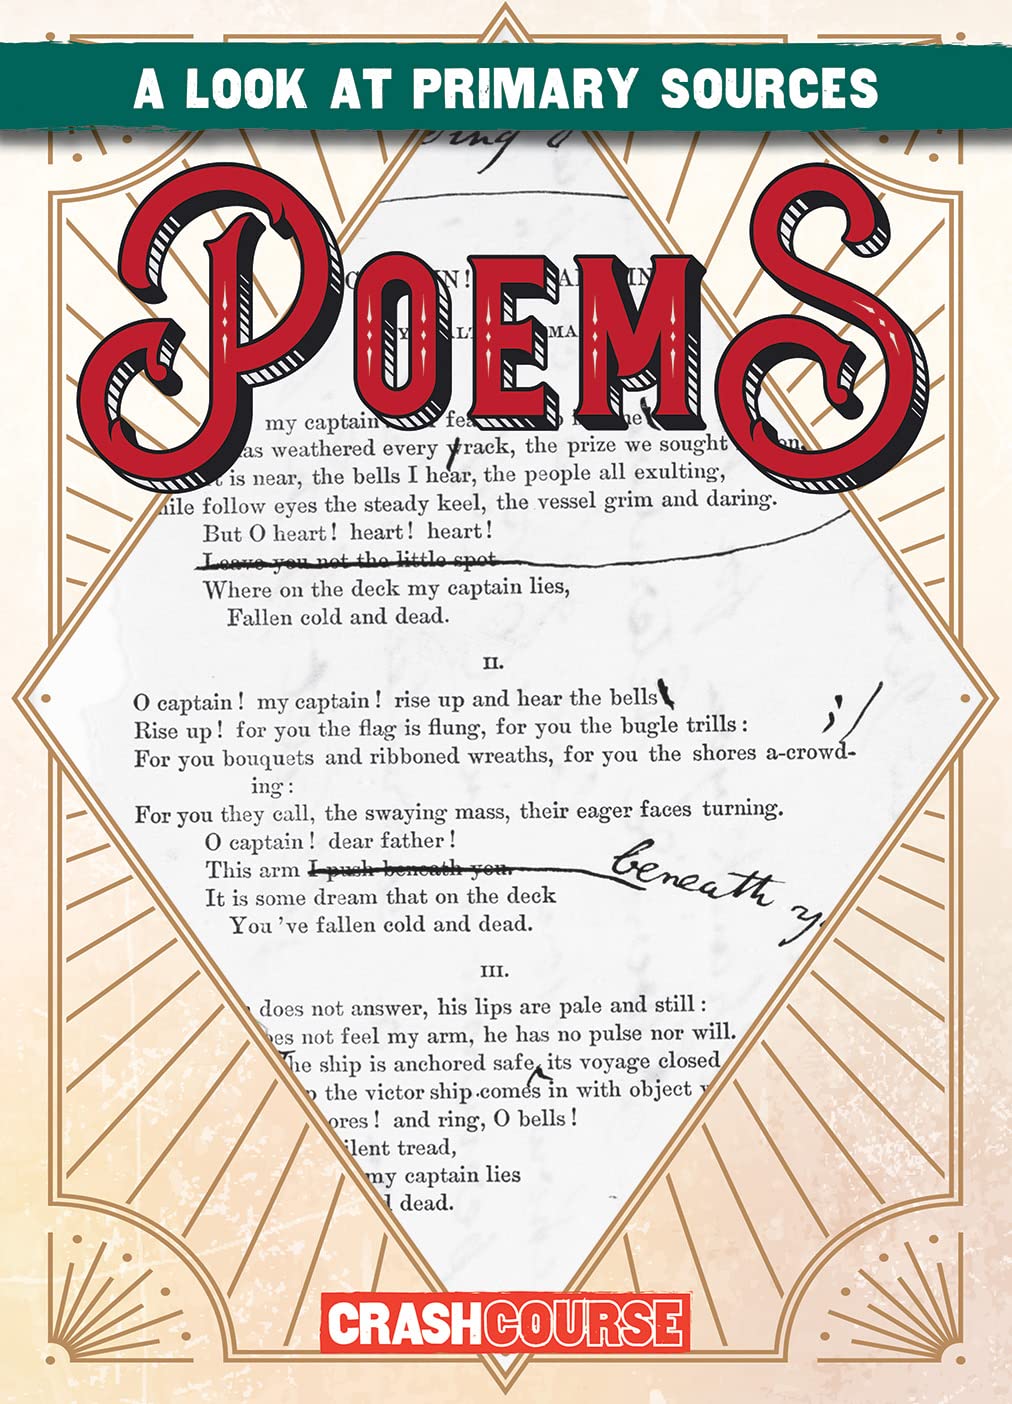 A LOOK AT PRIMARY SOURCES
POEMS
my captain
as weathered every rack, the prize we sought
is near, the bells I hear, the people all exulting,
follow eyes the steady keel, the vessel grim and daring.
But O heart! heart! heart!
Leave you not the little spot
Where on the deck my captain lies,
Fallen cold and dead.
II.
O captain! my captain! rise up and hear the bells
Rise up! for you the flag is flung, for you the bugle trills:
;/
For you bouquets and ribboned wreaths, for you the shores a-crowd-
ing:
For you they call, the swaying mass, their eager faces turning.
O captain! dear father!
This arm I push beneath you. beneath
It is some dream that on the deck
You 've fallen cold and dead.
III.
does not answer, his lips are pale and still:
es not feel my arm, he has no pulse nor will.
The ship is anchored safe, its voyage closed
the victor ship comes in with object
ores! and ring, O bells!
ilent tread,
my captain lies
dead.
CRASHCOURSE